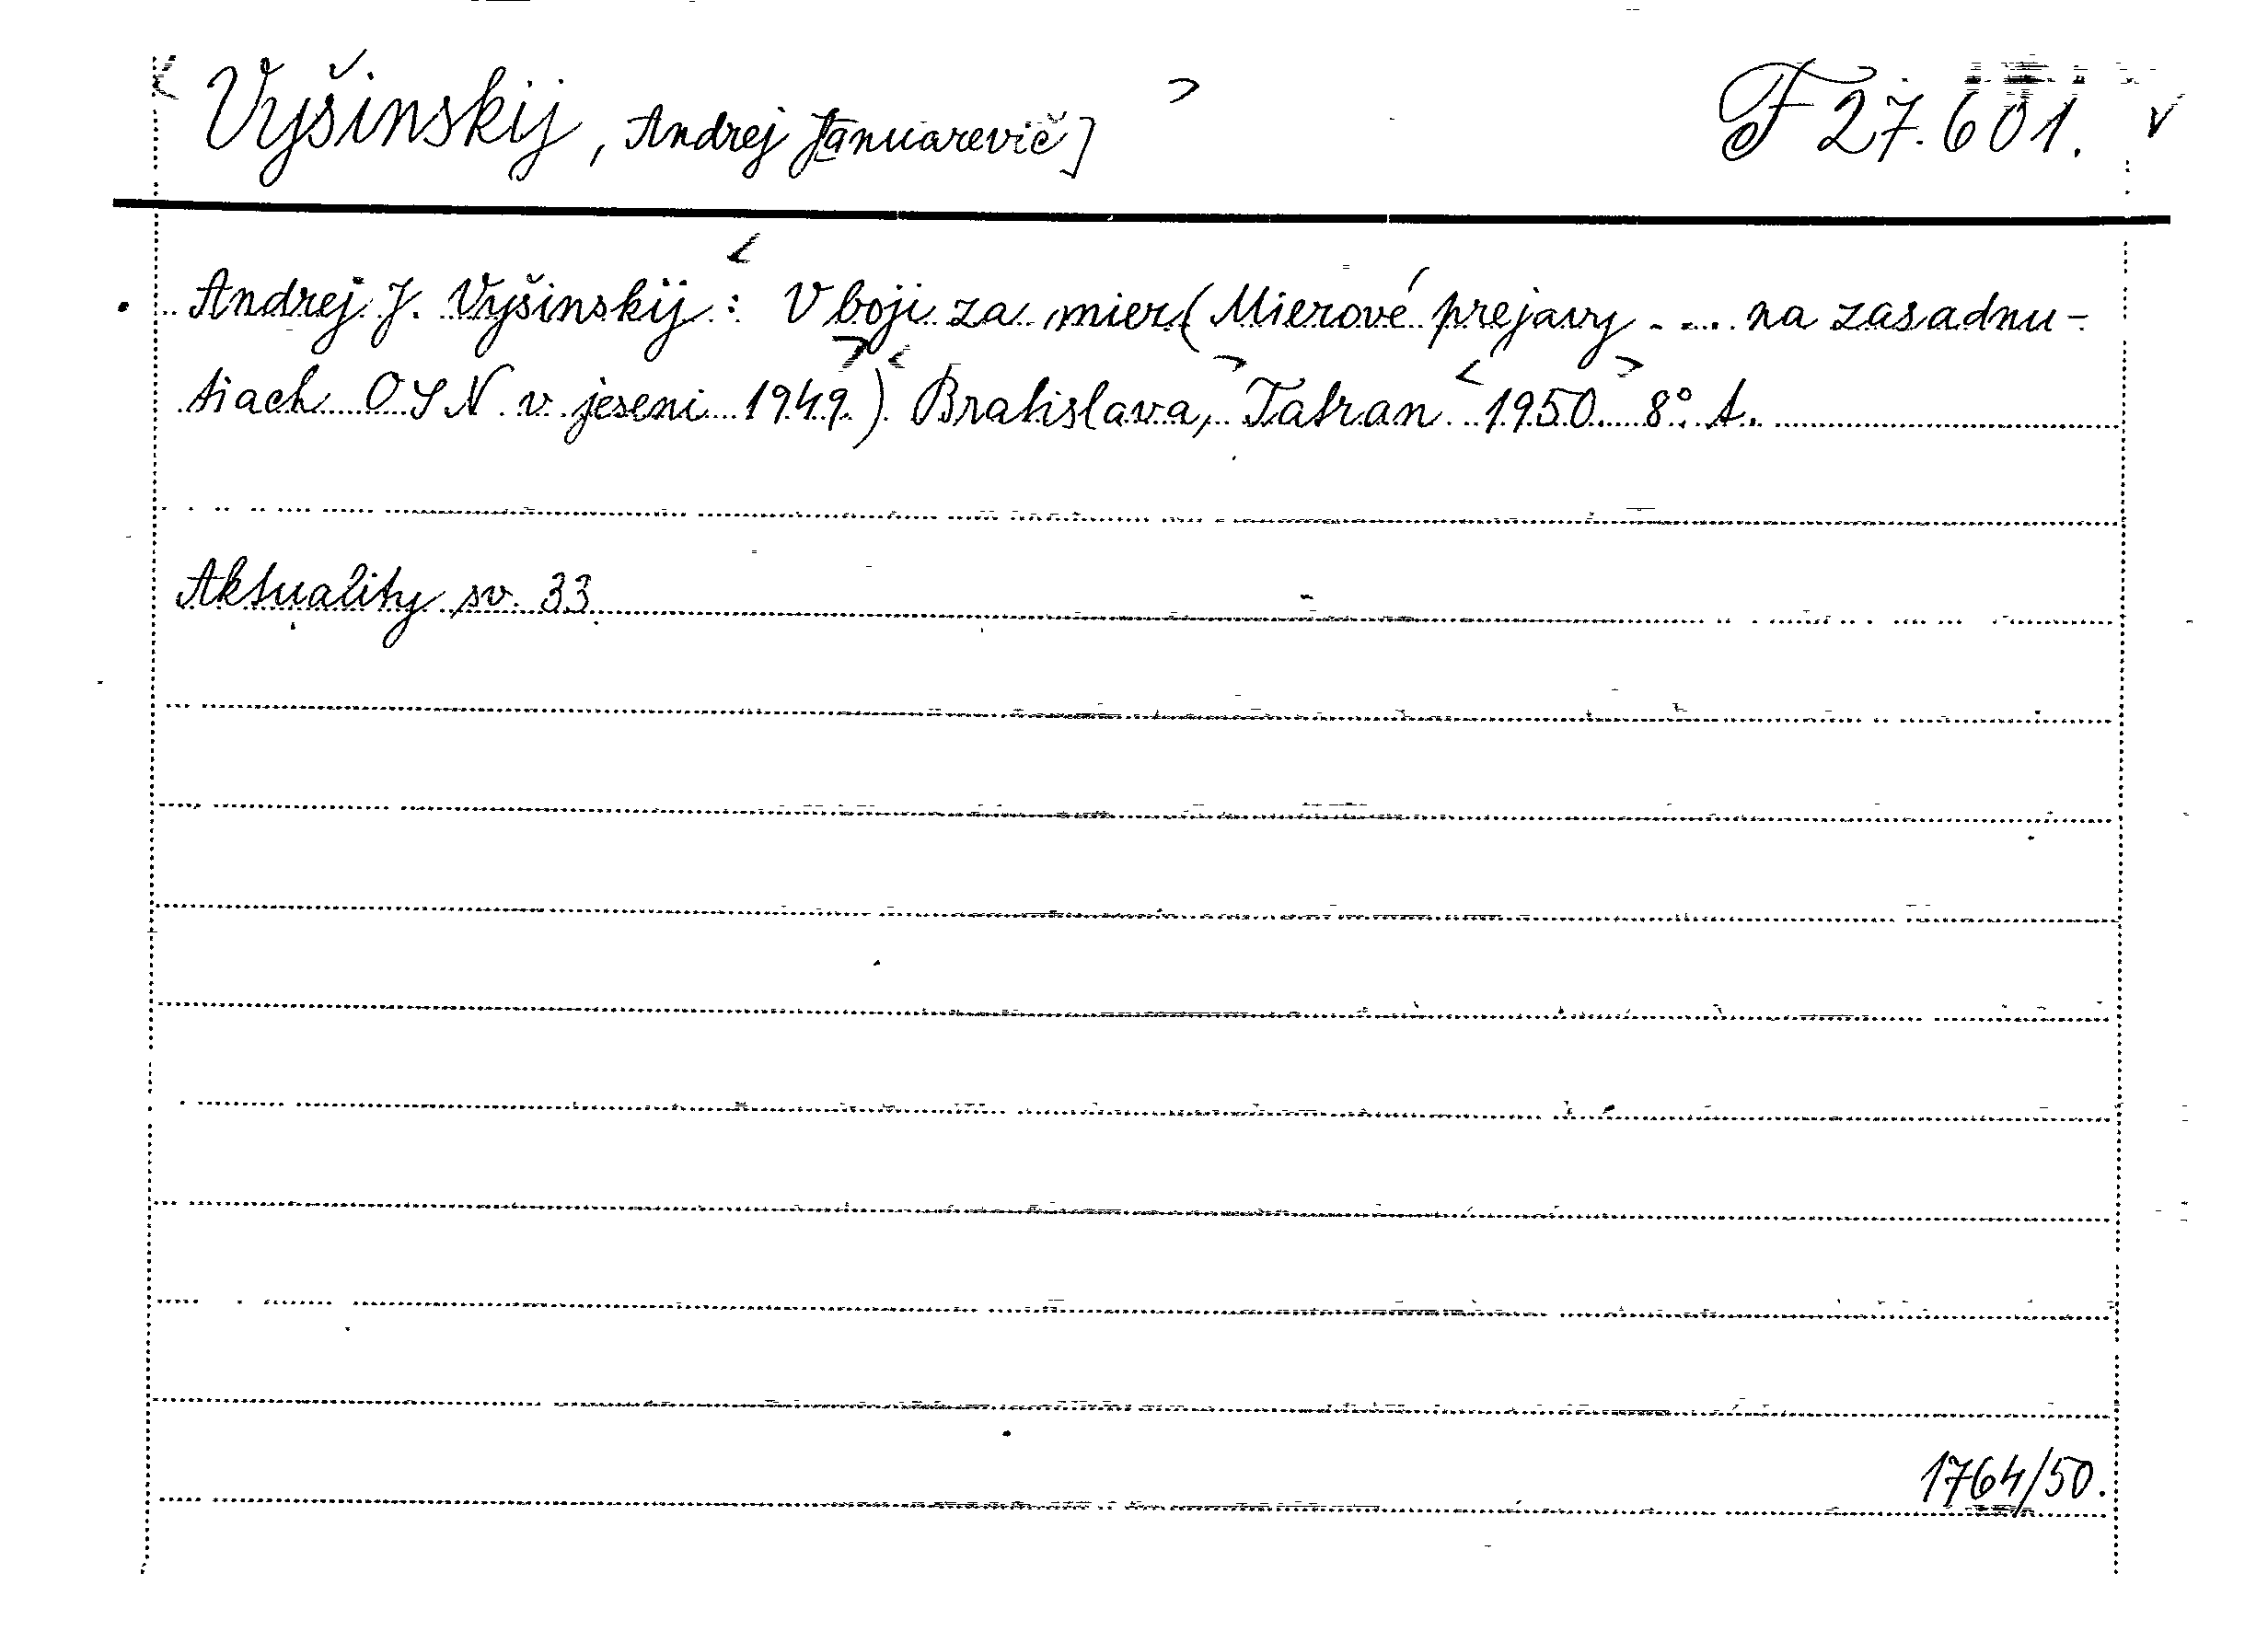 Vyšinskij, Andrej Januarevič] F 27.601.
Andrej J. Vyšinskij: V boji za mier (Mierové prejavy .... na zasadnu-
tiach OSN v jeseni 1949.) Bratislava, Tatran 1950. 8° t.
Aktuality sv. 33
1764/50.